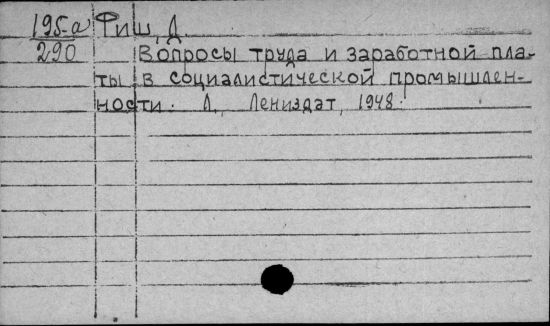 195-а Фиш, Д.
290 Вопросы труда и заработной пла-
ты в социалистической промышлен-
ности. Л., Лениздат, 1948.